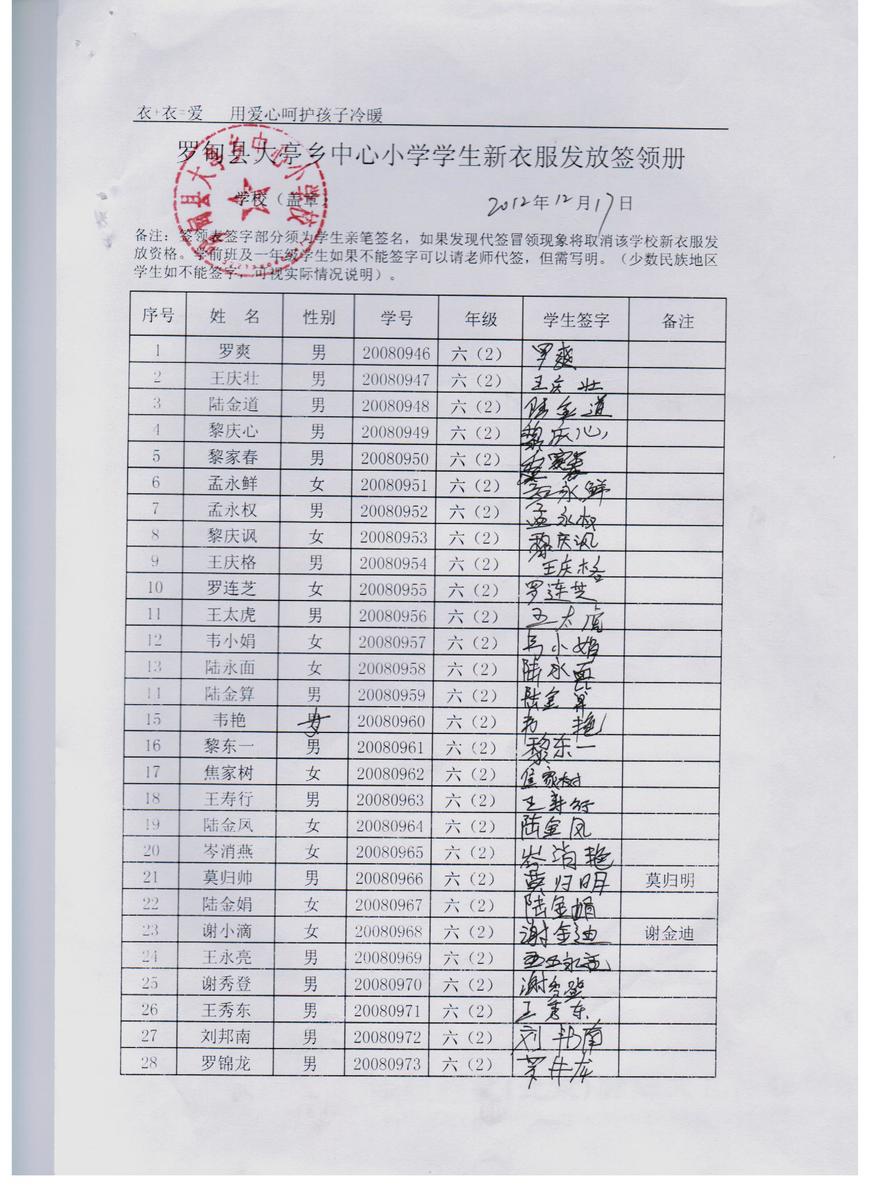 衣+衣=爱 用爱心呵护孩子冷暖
罗甸县大亭乡中心小学学生新衣服发放签领册
学校（盖章） 2012年12月17日
备注：签领表签字部分须为学生亲笔签名，如果发现代签冒领现象将取消该学校新衣服发
放资格。学前班及一年级学生如果不能签字可以请老师代签，但需写明。（少数民族地区
学生如不能签字，可视实际情况说明）。
序号 姓 名 性别 学号 年级 学生签字 备注
1 罗爽 男 20080946 六（2） 罗爽
2 王庆壮 男 20080947 六（2） 王庆壮
3 陆金道 男 20080948 六（2） 陆金道
4 黎庆心 男 20080949 六（2） 黎庆心
5 黎家春 男 20080950 六（2）
6 孟永鲜 女 20080951 六（2） 孟永鲜
7 孟永权 男 20080952 六（2） 孟永权
8 黎庆讽 女 20080953 六（2） 黎庆讽
9 王庆格 男 20080954 六（2） 王庆格
10 罗连芝 女 20080955 六（2） 罗连芝
11 王太虎 男 20080956 六（2） 王太虎
12 韦小娟 女 20080957 六（2） 韦小娟
13 陆永面 女 20080958 六（2） 陆永面
14 陆金算 男 20080959 六（2） 陆金算
15 韦艳 女 20080960 六（2） 韦艳
16 黎东一 男 20080961 六（2） 黎东一
17 焦家树 女 20080962 六（2） 焦家树
18 王寿行 男 20080963 六（2） 王寿行
19 陆金凤 女 20080964 六（2） 陆金凤
20 岑消燕 女 20080965 六（2） 岑消艳
21 莫归帅 男 20080966 六（2） 莫归明 莫归明
22 陆金娟 女 20080967 六（2） 陆金娟
23 谢小滴 女 20080968 六（2） 谢金迪 谢金迪
24 王永亮 男 20080969 六（2）
25 谢秀登 男 20080970 六（2） 谢秀登
26 王秀东 男 20080971 六（2） 王秀东
27 刘邦南 男 20080972 六（2） 刘邦南
28 罗锦龙 男 20080973 六（2）